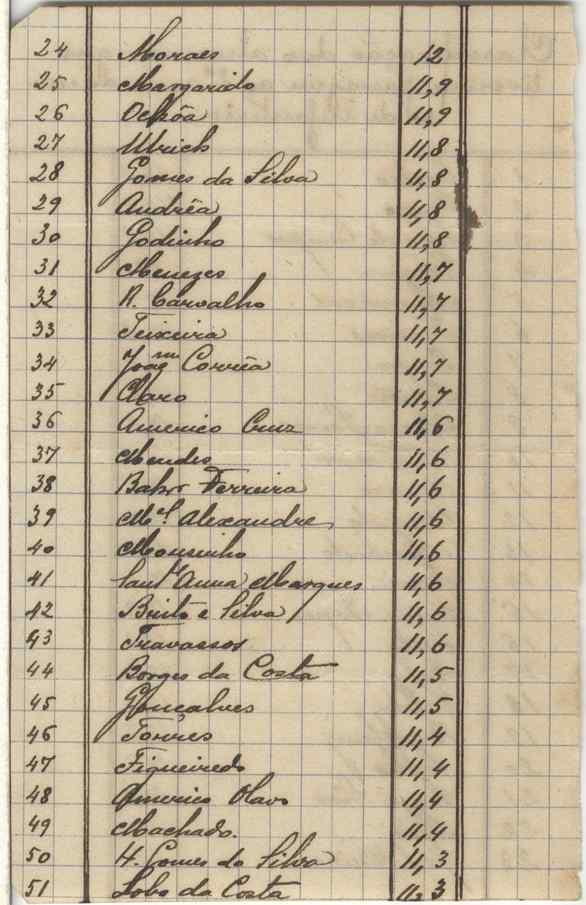 24 Moraes 12
25 Margarido 11,9
26 Ochôa 11,9
27 Ulrich 11,8
28 Gomes da Silva 11,8
29 Andrêa 11,8
30 Godinho 11,8
31 Menezes 11,7
32 R. Carvalho 11,7
33 Teixeira 11,7
34 Joaqm Corrêa 11,7
35 Claro 11,7
36 Americo Cruz 11,6
37 Mendes 11,6
38 Ferreira 11,6
39 Mel. Alexandre 11,6
40 Mousinho 11,6
41 Sant'Anna Marques 11,6
42 Brito e Silva 11,6
43 Travassos 11,6
44 Borges da Costa 11,5
45 Gonçalves 11,5
46 Torres 11,4
47 Figueiredo 11,4
48 Americo Olavo 11,4
49 Machado. 11,4
50 H. Gomes da Silva 11,3
51 Lobo da Costa 11,3